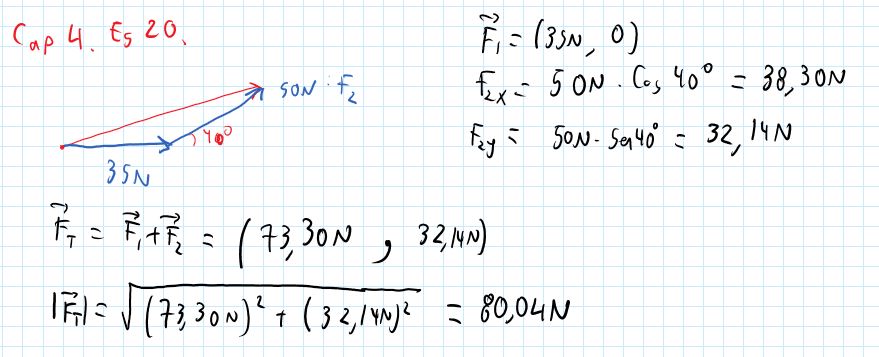 Cap 4. Es 20.
50N F₂
40°
35N
F⃗₁ = (35N, 0)
F₂ₓ = 50N · Cos 40° = 38,30N
F₂y = 50N · Sen 40° = 32,14N
F⃗_T = F⃗₁ + F⃗₂ = (73,30N , 32,14N)
|F⃗_T| = √(73,30N)² + (32,14N)² = 80,04N